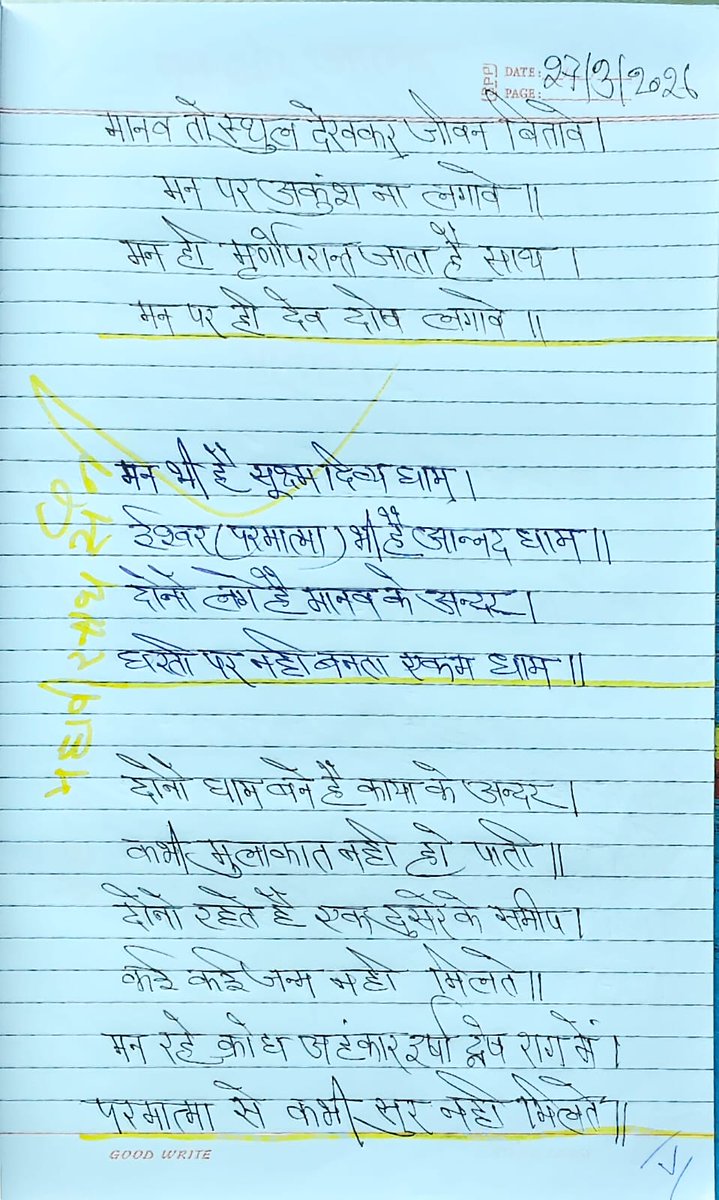 DATE: 27/3/2026
PAGE:
मानव तो स्थुल देखकर जीवन बितावे।
मन पर अकुंश ना लगावे॥
मन ही मृर्णोपरान्त जाता है साथ।
मन पर ही देव दोष लगावे॥
मन भी है सूक्ष्म दिव्य धाम।
ईश्वर (परमात्मा) भी है आन्नद धाम॥
दोनों लगे है मानव के अन्दर।
धरती पर नही बनता एकम धाम॥
दोनों धाम बने है काया के अन्दर।
कभी मुलाकात नही हो पाती॥
दोनों रहेते है एक दुसरे के समीप।
कई कई जन्म नही मिलते॥
मन रहे क्रोध अहंकार ईर्षा द्वेष राग में।
परमात्मा से कभी सुर नही मिलते॥
GOOD WRITE